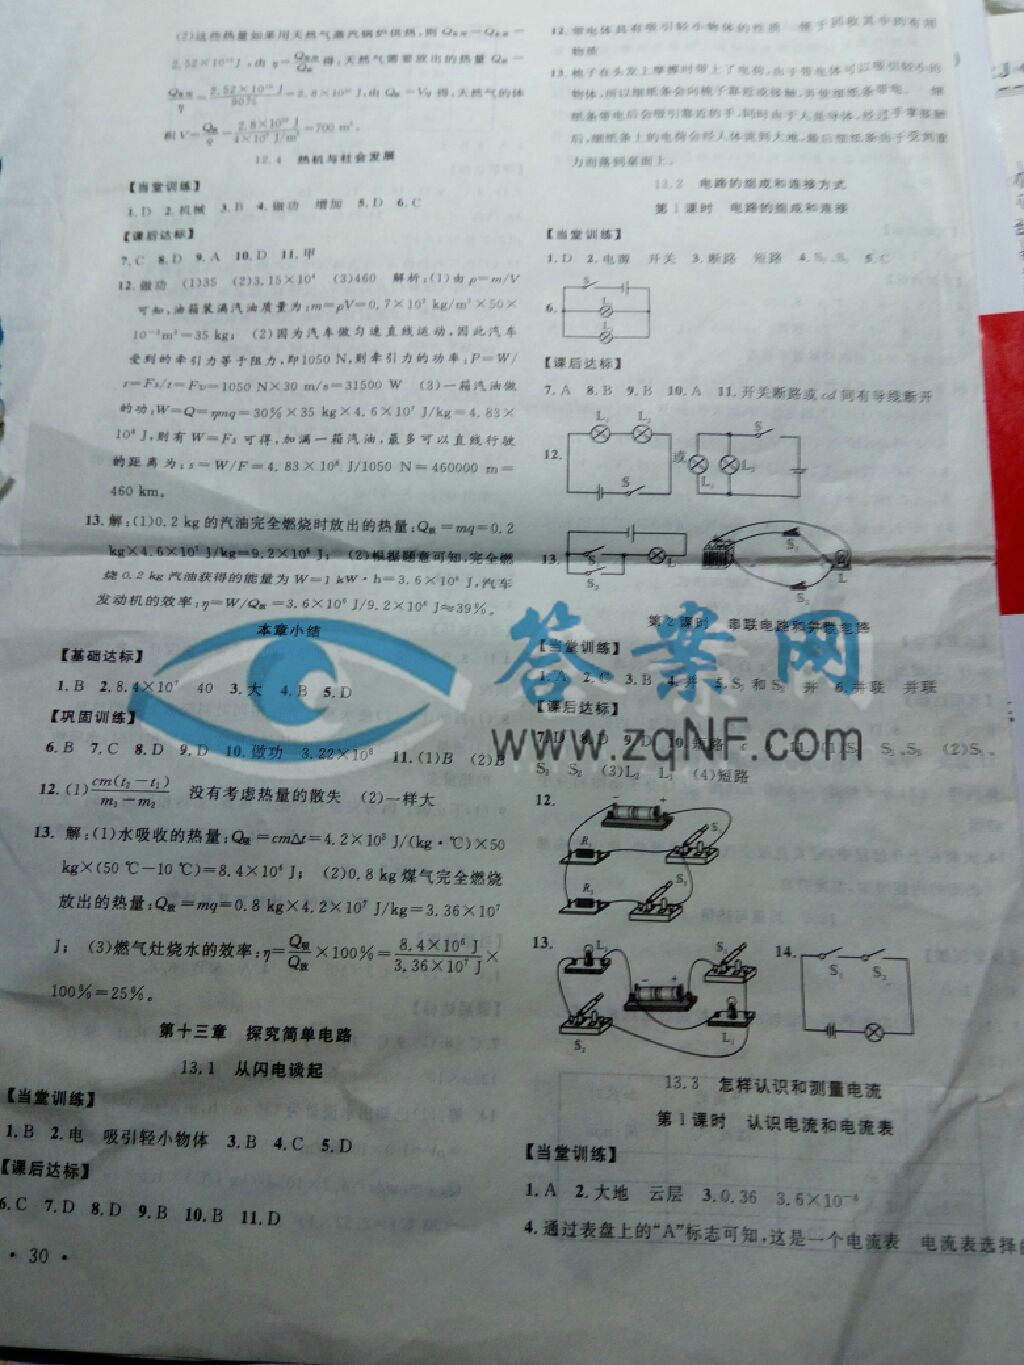 (2)这些热量如果用天然气蒸汽锅炉供热,则
2.52×10¹⁰J,由 得:天然气需要放出的热量
=2.8×10¹⁰J,由 得,天然气的体
积V= =700 m³。
12.4 热机与社会发展
【当堂训练】
1.D 2.机械 3.B 4.做功 增加 5.D 6.C
【课后达标】
7.C 8.D 9.A 10.D 11.甲
12.做功 (1)35 (2)3.15×10⁴ (3)460 解析:(1)由ρ=m/V
可知,油箱装满汽油质量为:m=ρV=0.7×10³ kg/m³×50×
10⁻³m³=35 kg; (2)因为汽车做匀速直线运动,因此汽车
受到的牵引力等于阻力,即1050 N,则牵引力的功率:P=W/
t=Fs/t=Fv=1050 N×30 m/s=31500 W (3)一箱汽油做
的功:W=Q=ηmq=30%×35 kg×4.6×10⁷ J/kg=4.83×
10⁸ J,则有W=Fs可得,加满一箱汽油,最多可以直线行驶
的距离为:s=W/F=4.83×10⁸ J/1050 N=460000 m=
460 km。
13.解:(1)0.2 kg的汽油完全燃烧时放出的热量:Q放=mq=0.2
kg×4.6×10⁷ J/kg=9.2×10⁶ J; (2)根据题意可知,完全燃
烧0.2 kg汽油获得的能量为W=1 kW·h=3.6×10⁶ J,汽车
发动机的效率:η=W/Q放=3.6×10⁶ J/9.2×10⁶ J≈39%。
本章小结
【基础达标】
1.B 2.8.4×10⁷ 40 3.大 4.B 5.D
【巩固训练】
6.B 7.C 8.D 9.D 10.做功 3.22×10⁸ 11.(1)B (2)B
12.(1)cm(t₂−t₁)/m₁−m₂ 没有考虑热量的散失 (2)一样大
13.解:(1)水吸收的热量:Q吸=cmΔt=4.2×10³ J/(kg·℃)×50
kg×(50 ℃−10 ℃)=8.4×10⁶ J; (2)0.8 kg煤气完全燃烧
放出的热量:Q放=mq=0.8 kg×4.2×10⁷ J/kg=3.36×10⁷
J; (3)燃气灶烧水的效率:η=Q吸/Q放×100%=8.4×10⁶ J/3.36×10⁷ J×
100%=25%。
第十三章 探究简单电路
13.1 从闪电谈起
【当堂训练】
1.B 2.电 吸引轻小物体 3.B 4.C 5.D
【课后达标】
6.C 7.D 8.D 9.B 10.B 11.D
·30·
12.带电体具有吸引轻小物体的性质
物质
13.梳子在头发上摩擦时带上了电荷,由于带电体可以吸引轻小的
物体,所以细纸条会向梳子靠近或接触,并使细纸条带电。 细
纸条带电后会吸引靠近的手,同时由于人是导体,经过手掌接触
后,细纸条上的电荷会经人体流到大地,最后细纸条由于受到重
力而落到桌面上。
13.2 电路的组成和连接方式
第1课时 电路的组成和连接
【当堂训练】
1.D 2.电源 开关 3.断路 短路 4. 5.C
6.
【课后达标】
7.A 8.B 9.B 10.A 11.开关断路或cd间有导线断开
L₁ L₂ S
12. 或 L₁ L₂
S
13. S₁ L S₁
S₂ S₂ L
第2课时 串联电路和并联电路
【当堂训练】
1.A 2.C 3.B 4.并 5.S₁和S₂ 并 6.并联 并联
【课后达标】
7.D 8.D 9.D 10.短路 11.(1)S₂
(3)L₂ L₁ (4)短路
12. − + S₁
R₂
R₁ S₂
13. L₂ S₁ 14. S₁ S₂
− +
S₂ L₁
13.3 怎样认识和测量电流
第1课时 认识电流和电流表
【当堂训练】
1.A 2.大地 云层 3.0.36 3.6×10⁻⁴
4.通过表盘上的“A”标志可知,这是一个电流表 电流表选择的
答案网
www.zqNF.com